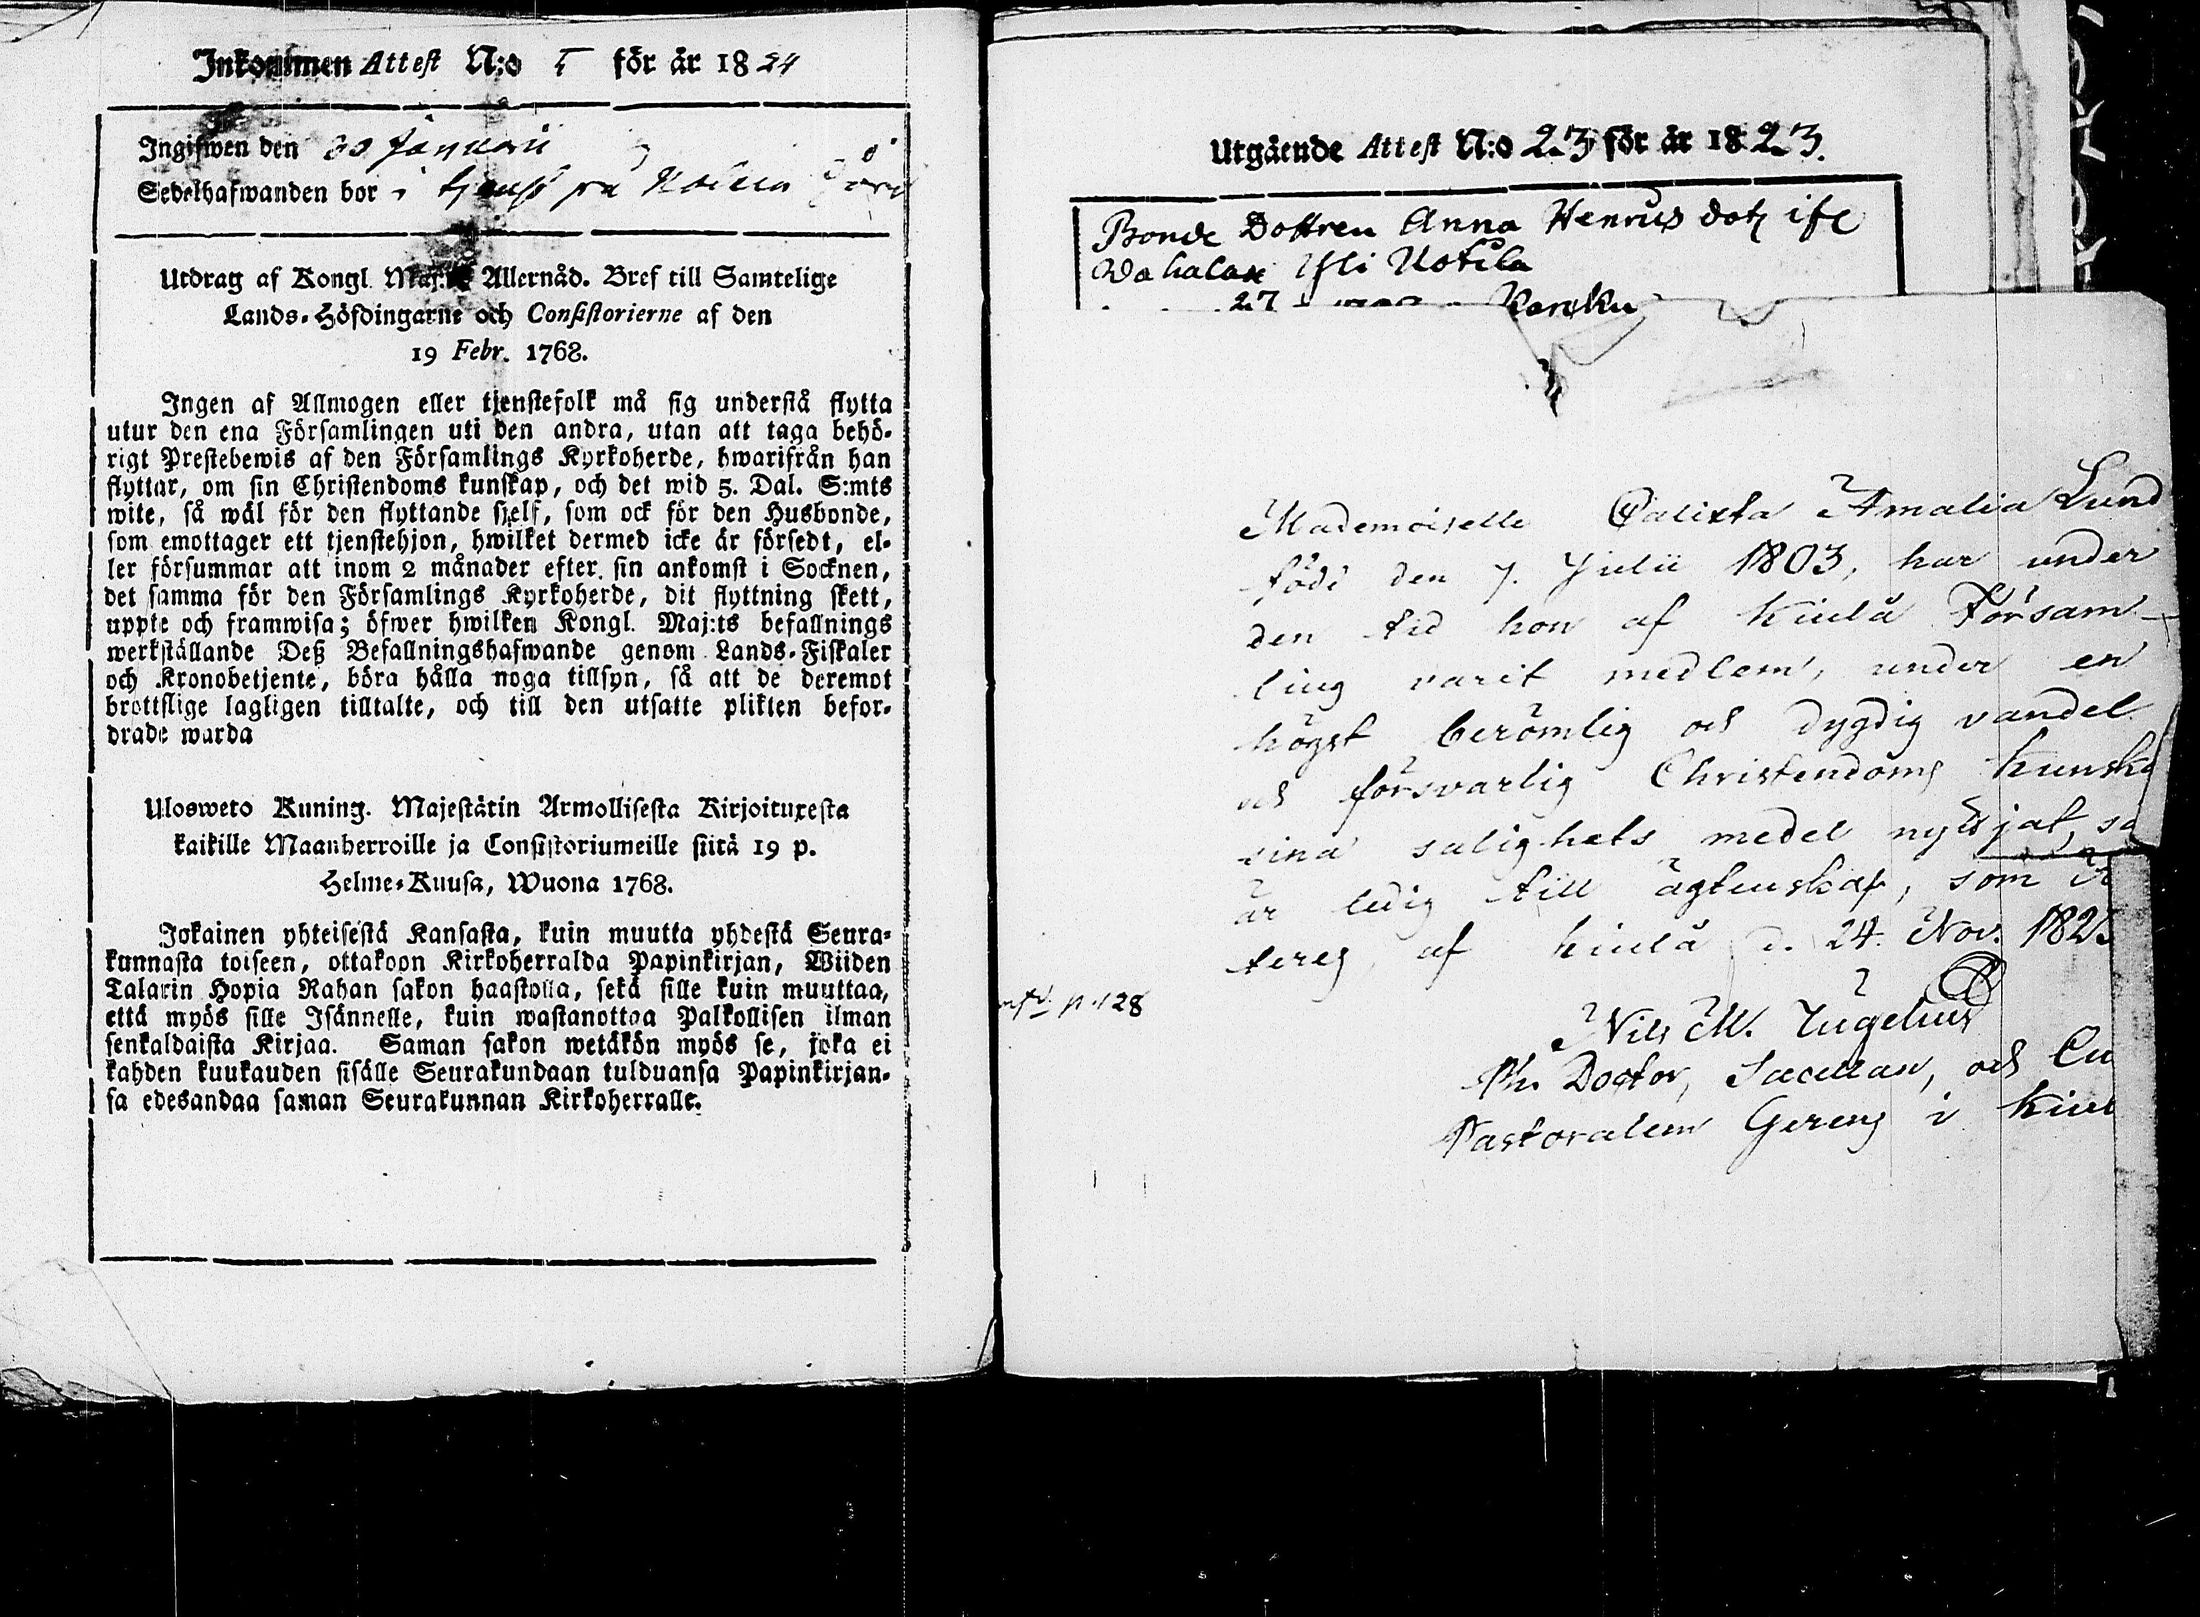 Inkommen Attest N:o 1 för år 1824
Ingifwen den 30 Januarii
Sedelhafwanden bor i tjenst på
Utdrag af Kongl. Maj:ts Allernåd. Bref till Samtelige
Lands-Höfdingarne och Consistorierne af den
19 Febr. 1768.
Ingen af Allmogen eller tjenstefolk må sig understå flytta
utur den ena Församlingen uti den andra, utan att taga behö-
rigt Prestebewis af den Församlings Kyrkoherde, hwarifrån han
flyttar, om sin Christendoms kunskap, och det wid 5. Dal. S:mts
wite, så wäl för den flyttande sjelf, som ock för den Husbonde,
som emottager ett tjenstehjon, hwilket dermed icke är försedt, el-
ler försummar att inom 2 månader efter sin ankomst i Socknen,
det samma för den Församlings Kyrkoherde, dit flyttning skett,
uppte och framwisa; öfwer hwilken Kongl. Maj:ts befallnings
werkställande Deß Befallningshafwande genom Lands-Fiskaler
och Kronobetjente, böra hålla noga tillsyn, så att de deremot
brottslige lagligen tilltalte, och till den utsatte plikten befor-
drade warda
Ulosweto Kuning. Majestätin Armollisesta Kirjoituxesta
kaikille Maanherroille ja Consistoriumeille siitä 19 p.
Helme-Kuusa, Wuona 1768.
Jokainen yhteisestä Kansasta, kuin muutta yhdestä Seura-
kunnasta toiseen, ottakoon Kirkoherralda Papinkirjan, Wiiden
Talarin Hopia Rahan sakon haastolla, sekä sille kuin muuttaa,
että myös sille Isännelle, kuin wastanottaa Palkollisen ilman
senkaldaista Kirjaa. Saman sakon wetäkön myös se, joka ei
kahden kuukauden sisälle Seurakundaan tulduansa Papinkirjan-
sa edesandaa saman Seurakunnan Kirkoherralle.
Utgående Attest N:o 23 för år 1823.
Bonde Dottren Anna Henrics dotr ifr
Wahalax Ytli Uotila
27
Mademoiselle Calixta Amalia Lund
född den 7. Julii 1803, har under
den tid hon af Kiulå Försam-
ling varit medlem, under en
högst berömlig och dygdig vandel
och försvarlig Christendoms kunska
sina salighets medel nyttjat, sa
är ledig till ägtenskap, som
af Kiulå d. 24. Nov. 182
p. 128
Nils M. Tugelius
Ph. Doctor, Sacellan, och Cu
Pastoralem Gerens i Kiul